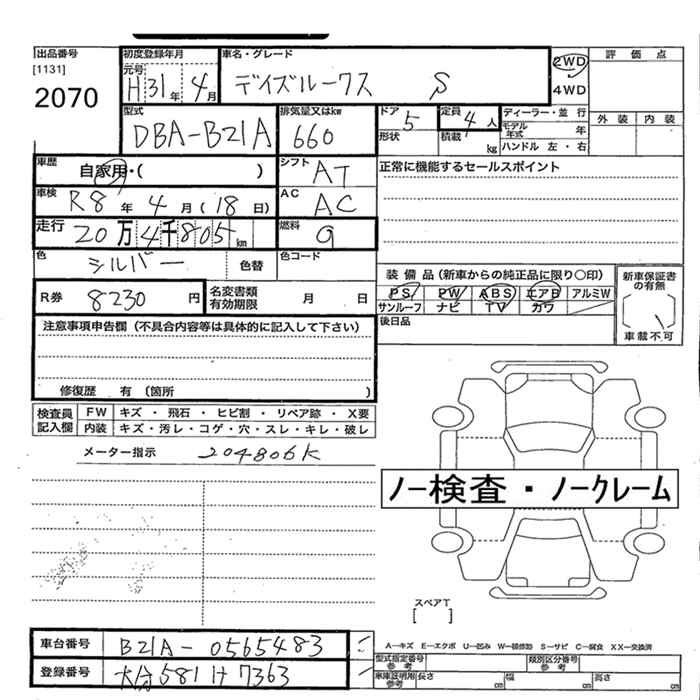 出品番号
[1131]
2070
初度登録年月
元号
H 31年 4月
車名・グレード
デイズルークス S
2WD
4WD
評価点
外装 内装
型式
DBA-B21A
排気量又はkw
660
ドア 5
形状
定員 4人
積載 kg
ディーラー・並行
モデル年式 年
ハンドル 左・右
車歴
自家用・( )
シフト
AT
正常に機能するセールスポイント
車検
R8年 4月(18日)
AC
AC
走行
20万4千805km
燃料
g
色
シルバー
色替
色コード
装備品(新車からの純正品に限り○印)
PS PW ABS エアB アルミW
サンルーフ ナビ TV カワ
新車保証書の有無
車載不可
後日品
R券 8230円
名変書類有効期限 月 日
注意事項申告欄(不具合内容等は具体的に記入して下さい)
修復歴 有(箇所
検査員記入欄
FW キズ・飛石・ヒビ割・リペア跡・X要
内装 キズ・汚レ・コゲ・穴・スレ・キレ・破レ
メーター指示 204806K
ノー検査・ノークレーム
スペアT
[ ]
車台番号 B21A-0565483
登録番号 大分581け7363
A-キズ E-エクボ U-凹み W-補修跡 S-サビ C-腐食 XX-交換済
型式指定番号参考
類別区分番号参考
車庫証明用参考 長さ cm 幅 cm 高さ cm